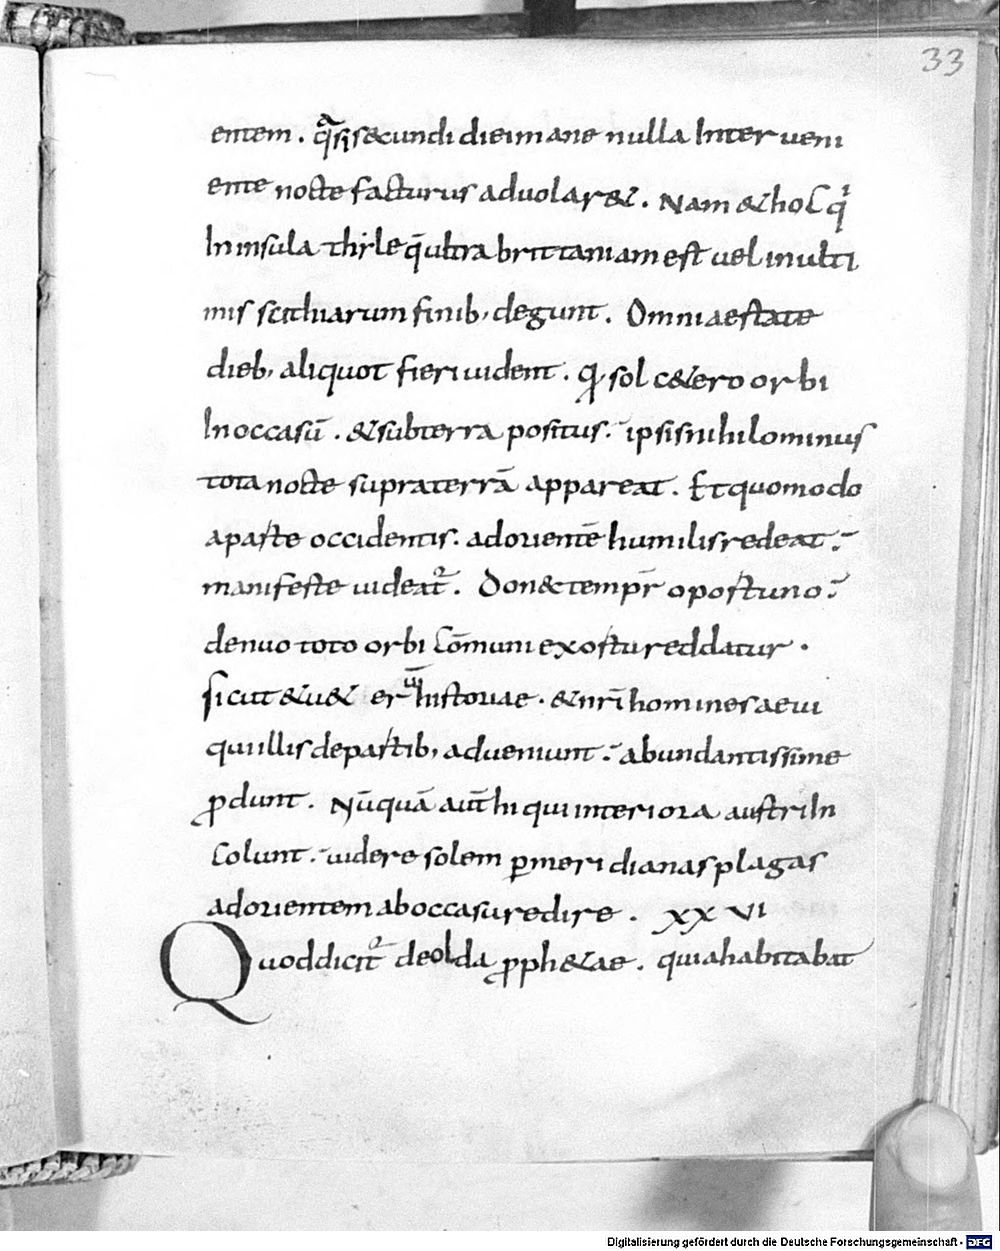 33
entem . q̄ᵃsi secundi diei mane nulla Interueni
ente nocte facturus aduolar&. Nam & hoc q̇
In insula thyle q̄ ultra brittaniam est uel in ulti
mis scithiarum finib; degunt. Omni aestate
dieb; aliquot fieri uident. q sol c&ero orbi
In occasū . & sub terra positus. ipsis nihilominus
tota nocte supra terrā appareat. Et quomodo
a parte occidentis. ad orientē humilis redeat.
manifeste uideat̄. Don& tempr̄ oportuno.
denuo toto orbi cōmuni exortu reddatur .
sicut & u& erū historiae . & nr̄i homines aeui
qui illis de partib; adueniunt. abundantissime
ꝓdunt. Nūquā aut̄ hi qui interiora austri In
colunt. uidere solem ꝑ meridianas plagas
ad orientem ab occasu redire . XXVI
Quod dicit̄ de olda ꝓph&ae. quia habitabat
Digitalisierung gefördert durch die Deutsche Forschungsgemeinschaft - DFG